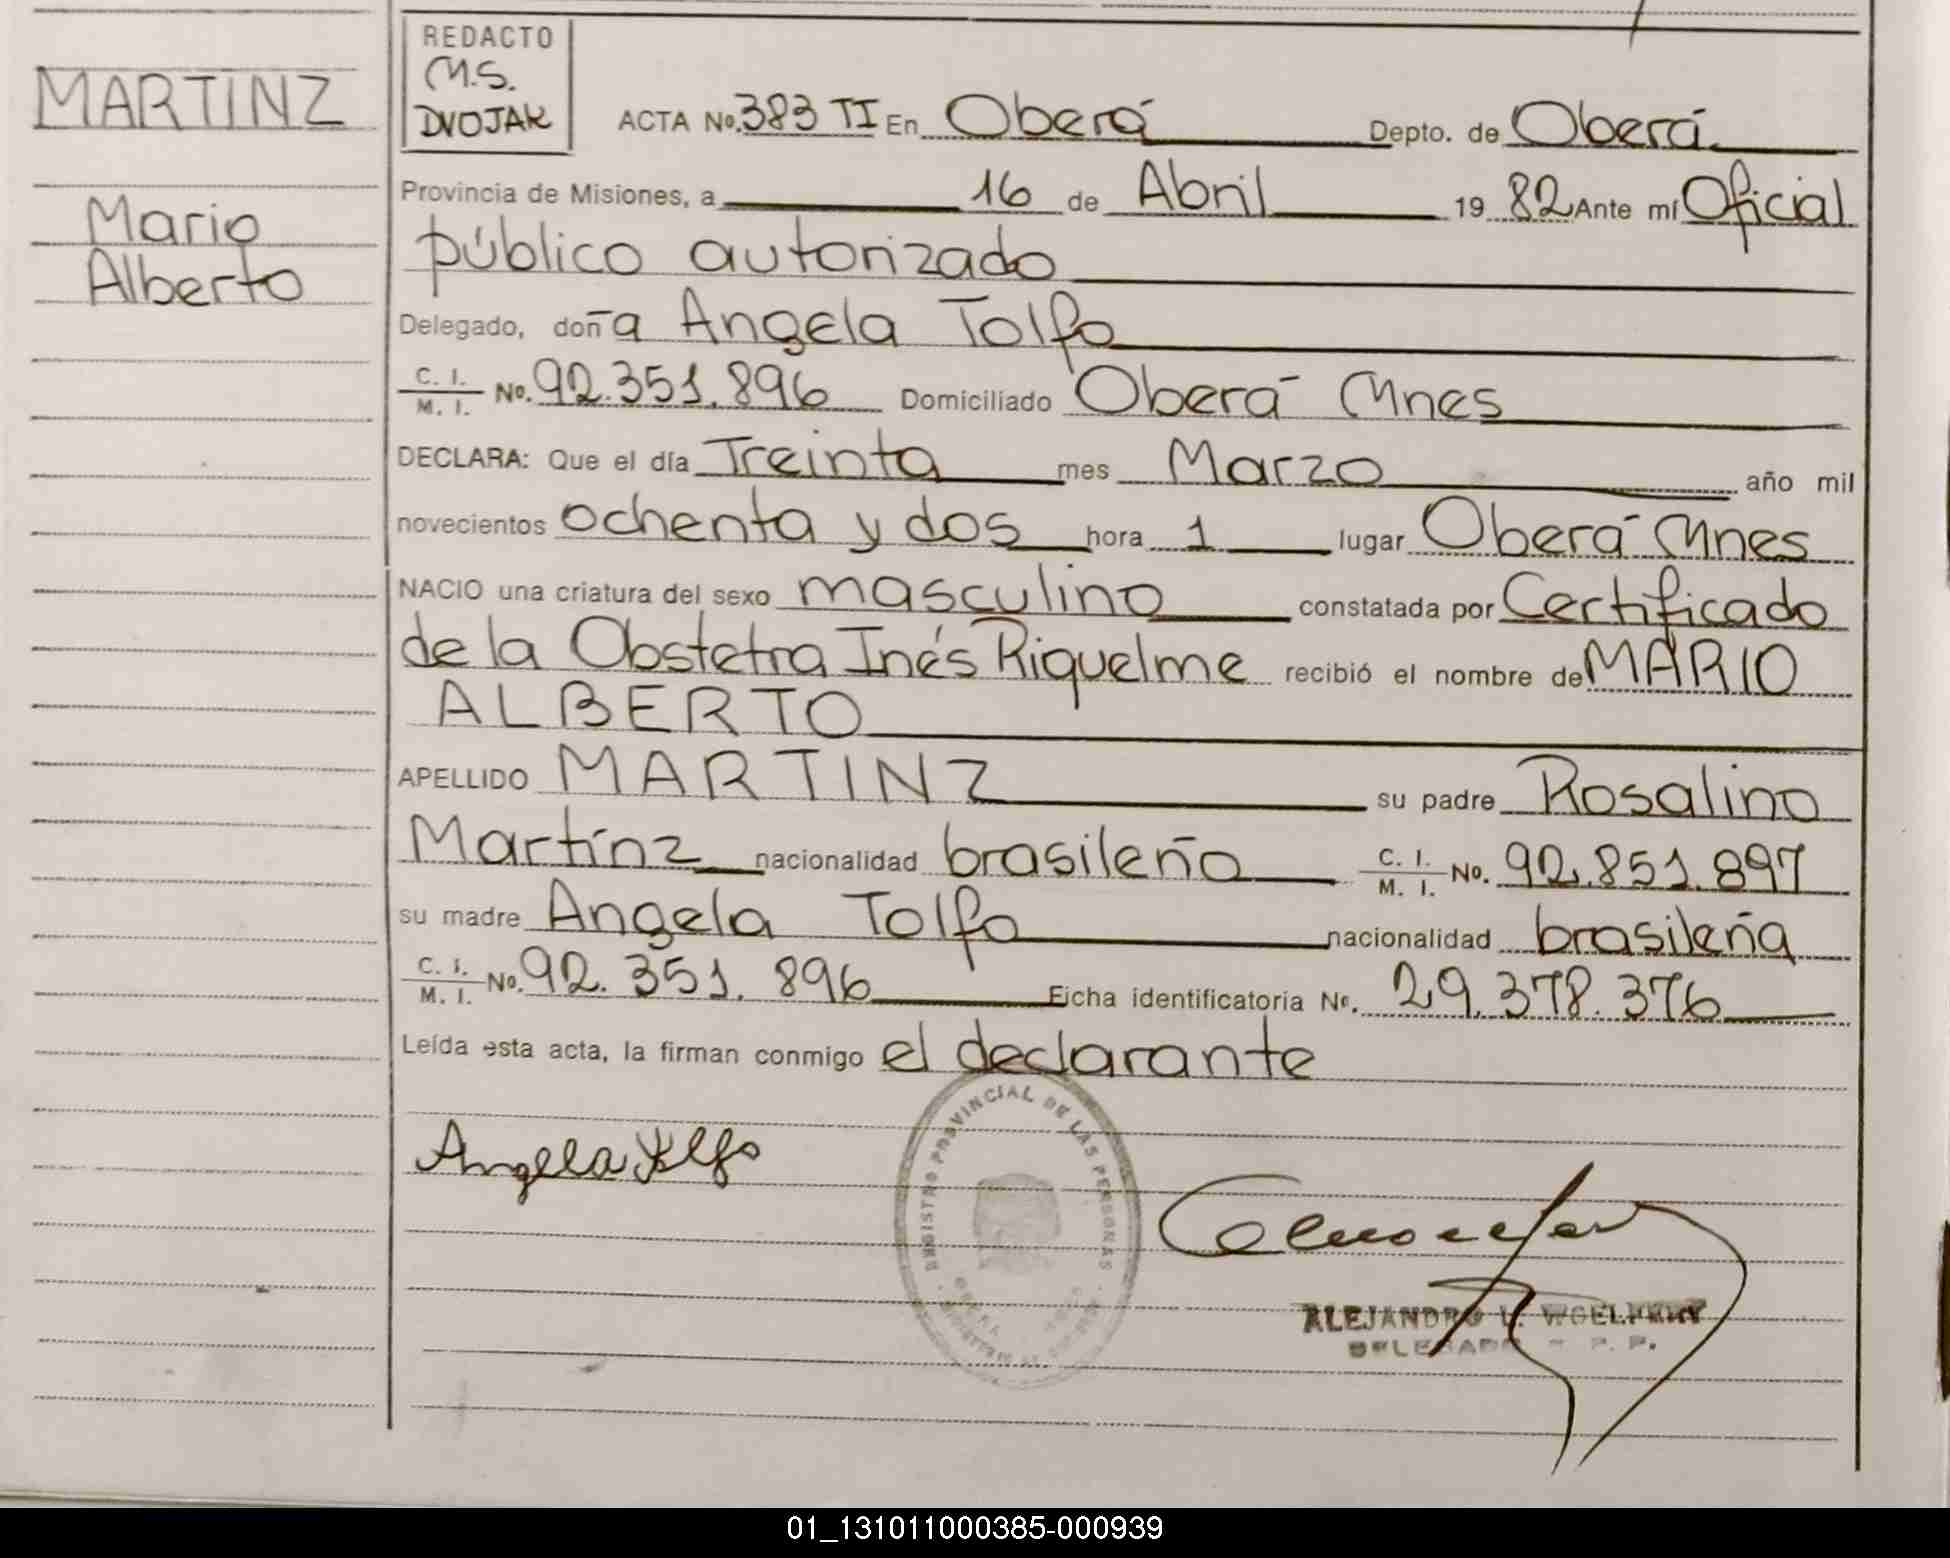 MARTINZ
Mario
Alberto
REDACTO
M.S.
DVOJAK
ACTA No. 383 TI En Oberá Depto. de Oberá
Provincia de Misiones, a 16 de Abril 19 82 Ante mí Oficial
público autorizado
Delegado, doña Angela Tolfo
C. I. / M. I. No. 92.351.896 Domiciliado Oberá Mnes
DECLARA: Que el día Treinta mes Marzo año mil
novecientos ochenta y dos hora 1 lugar Oberá Mnes
NACIO una criatura del sexo masculino constatada por Certificado
de la Obstetra Inés Riquelme recibió el nombre de MARIO
ALBERTO
APELLIDO MARTINZ su padre Rosalino
Martínz nacionalidad brasileña C. I. / M. I. No. 92.851.897
su madre Angela Tolfo nacionalidad brasileña
C. I. / M. I. No. 92.351.896 Ficha identificatoria No. 29.378.376
Leída esta acta, la firman conmigo el declarante
REGISTRO PROVINCIAL DE LAS PERSONAS
Angela Tolfo
ALEJANDRO
DELEGADO R. P. P.
01_131011000385-000939